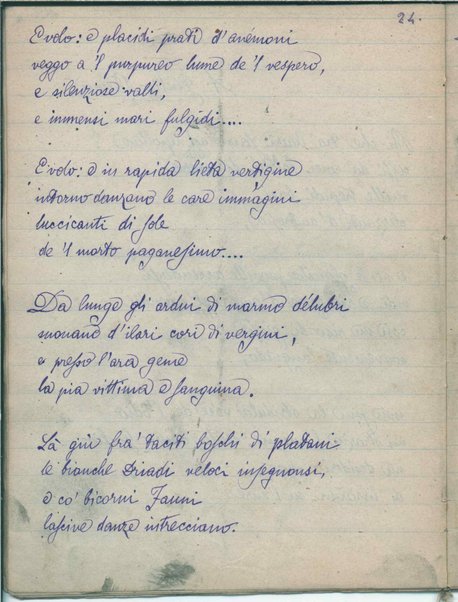 24.
Evolo: e placidi prati d'anemoni
veggo a 'l purpureo lume de 'l vespero,
e silenziose valli,
e immensi mari fulgidi....
Evolo: e in rapida lieta vertigine
intorno danzano le care immagini
luccicanti di sole
de 'l morto paganesimo....
Da lunge gli ardui di marmo délubri
suonano d'ilari cori di vergini,
e presso l'ara geme
la pia vittima e sanguina.
Là giù fra' taciti boschi di platani
le bianche Driadi veloci inseguonsi,
o co' bicorni Fauni
lascive danze intrecciano.